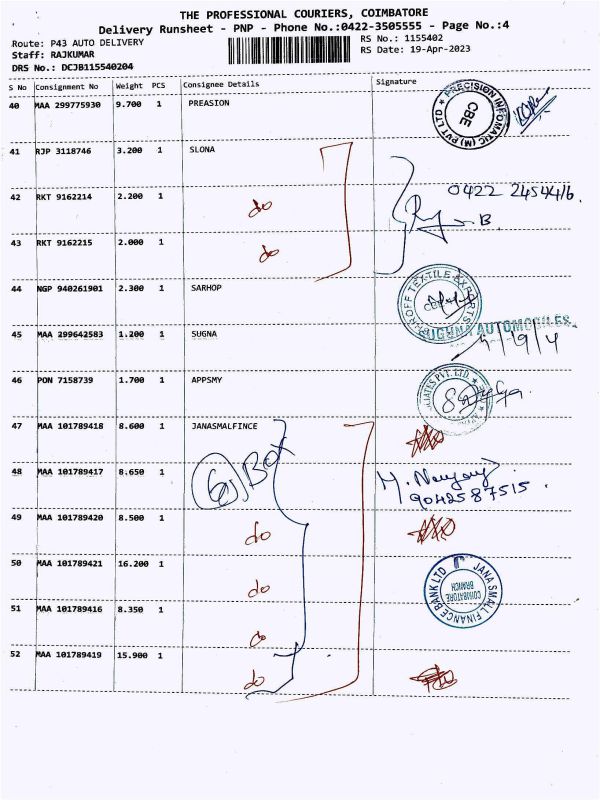 THE PROFESSIONAL COURIERS, COIMBATORE
Delivery Runsheet - PNP - Phone No.:0422-3505555 - Page No.:4
Route: P43 AUTO DELIVERY
RS No.: 1155402
Staff: RAJKUMAR
RS Date: 19-Apr-2023
DRS No.: DCJB115540204
S No Consignment No Weight PCS Consignee Details Signature
40 MAA 299775930 9.700 1 PREASION
PRECISION INFOMATIC (M) PVT LTD
CBE
41 RJP 3118746 3.200 1 SLONA
42 RKT 9162214 2.200 1 do
0422 2454416.
43 RKT 9162215 2.000 1 do
B.
44 NGP 940261901 2.300 1 SARHOP
TEXTILE EXPORTS
45 MAA 299642583 1.200 1 SUGNA
SUGUNA AUTOMOBILES
46 PON 7158739 1.700 1 APPSMY
PVT. LTD.
47 MAA 101789418 8.600 1 JANASMALFINCE
6 Box
48 MAA 101789417 8.650 1
9042587515.
49 MAA 101789420 8.500 1 do
50 MAA 101789421 16.200 1 do
JANA SMALL FINANCE BANK LTD
COIMBATORE
BRANCH
51 MAA 101789416 8.350 1 do
52 MAA 101789419 15.900 1 do